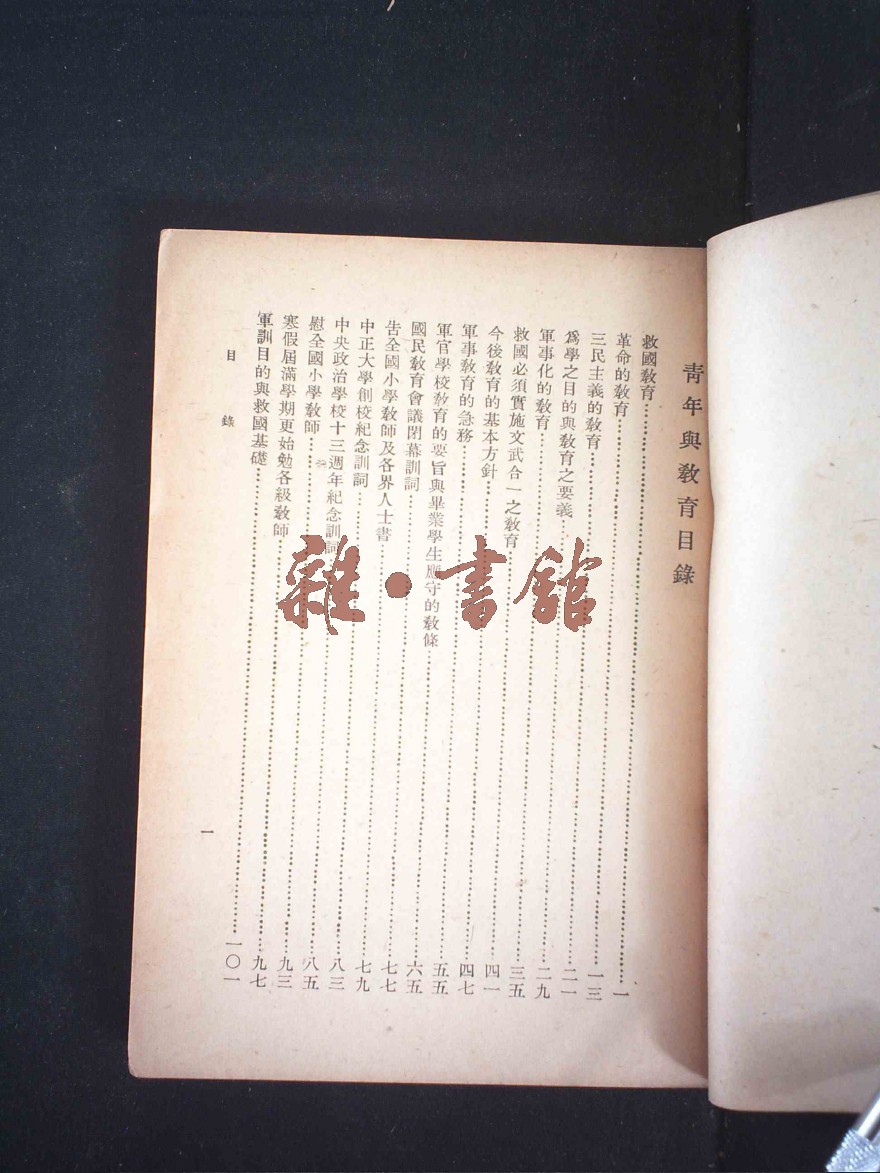 青年與教育目錄
救國教育……一
革命的教育……一三
三民主義的教育……二一
爲學之目的與教育之要義……二九
軍事化的教育……三五
救國必須實施文武合一之教育……四一
今後教育的基本方針……四七
軍事教育的急務……五五
軍官學校教育的要旨與畢業學生應守的教條……六五
國民教育會議閉幕訓詞……七七
告全國小學教師及各界人士書……七九
中正大學創校紀念訓詞……八三
中央政治學校十三週年紀念訓詞……八五
慰全國小學教師……九三
寒假屆滿學期更始勉各級教師……九七
軍訓目的與救國基礎……一〇一
目錄
一
雜·書館